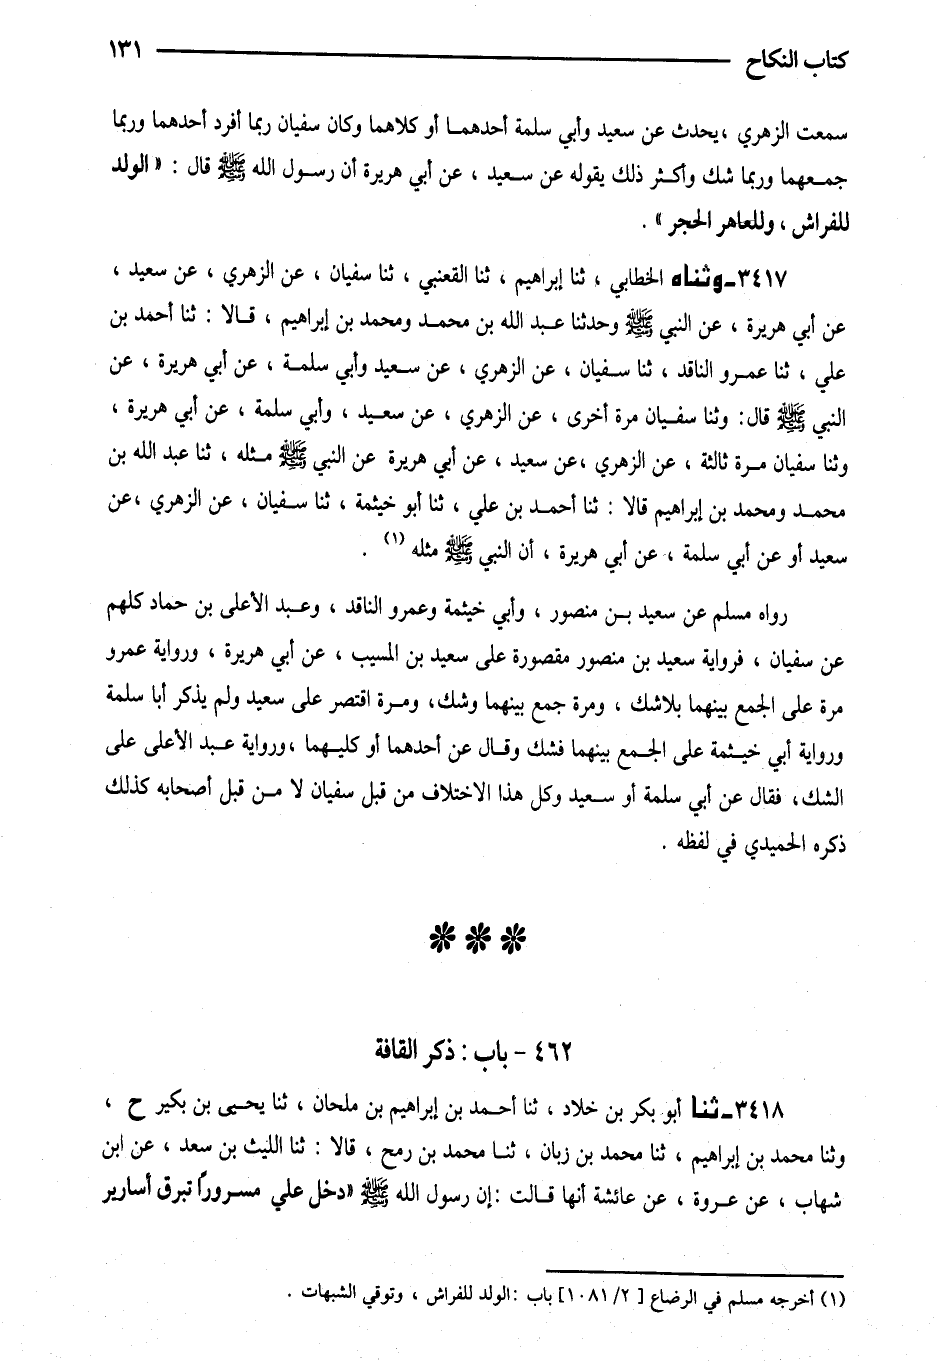 كتاب النكاح ١٣١
سمعت الزهري ،يحدث عن سعيد وأبي سلمة أحدهما أو كلاهما وكان سفيان ربما أفرد أحدهما وربما
جمعهما وربما شك وأكثر ذلك يقوله عن سعيد ، عن أبي هريرة أن رسول الله ﷺ قال : « الولد
للفراش ، وللعاهر الحجر » .
٣٤١٧ـ وثناه الخطابي ، ثنا إبراهيم ، ثنا القعنبي ، ثنا سفيان ، عن الزهري ، عن سعيد ،
عن أبي هريرة ، عن النبي ﷺ وحدثنا عبد الله بن محمد ومحمد بن إبراهيم ، قالا : ثنا أحمد بن
علي ، ثنا عمرو الناقد ، ثنا سفيان ، عن الزهري ، عن سعيد وأبي سلمة ، عن أبي هريرة ، عن
النبي ﷺ قال: وثنا سفيان مرة أخرى ، عن الزهري ، عن سعيد ، وأبي سلمة ، عن أبي هريرة ،
وثنا سفيان مرة ثالثة ، عن الزهري ،عن سعيد ، عن أبي هريرة عن النبي ﷺ مثله ، ثنا عبد الله بن
محمد ومحمد بن إبراهيم قالا : ثنا أحمد بن علي ، ثنا أبو خيثمة ، ثنا سفيان ، عن الزهري ،عن
سعيد أو عن أبي سلمة ، عن أبي هريرة ، أن النبي ﷺ مثله (١) .
رواه مسلم عن سعيد بن منصور ، وأبي خيثمة وعمرو الناقد ، وعبد الأعلى بن حماد كلهم
عن سفيان ، فرواية سعيد بن منصور مقصورة على سعيد بن المسيب ، عن أبي هريرة ، ورواية عمرو
مرة على الجمع بينهما بلاشك ، ومرة جمع بينهما وشك، ومرة اقتصر على سعيد ولم يذكر أبا سلمة
ورواية أبي خيثمة على الجمع بينهما فشك وقال عن أحدهما أو كليهما ،ورواية عبد الأعلى على
الشك، فقال عن أبي سلمة أو سعيد وكل هذا الاختلاف من قبل سفيان لا من قبل أصحابه كذلك
ذكره الحميدي في لفظه .
٤٦٢ - باب : ذكر القافة
٣٤١٨ـ ثنا أبو بكر بن خلاد ، ثنا أحمد بن إبراهيم بن ملحان ، ثنا يحيى بن بكير ح ،
وثنا محمد بن إبراهيم ، ثنا محمد بن زبان ، ثنا محمد بن رمح ، قالا : ثنا الليث بن سعد ، عن ابن
شهاب ، عن عروة ، عن عائشة أنها قالت :إن رسول الله ﷺ «دخل علي مسروراً تبرق أسارير
(١) أخرجه مسلم في الرضاع [ ٢/ ١٠٨١] باب :الولد للفراش ، وتوقي الشبهات .